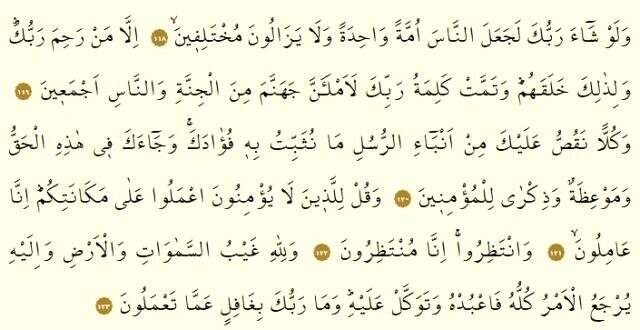 وَلَوْ شَٓاءَ رَبُّكَ لَجَعَلَ النَّاسَ اُمَّةً وَاحِدَةً وَلَا يَزَالُونَ مُخْتَلِف۪ينَۙ ﴿١١٨﴾ اِلَّا مَنْ رَحِمَ رَبُّكَۜ
وَلِذٰلِكَ خَلَقَهُمْۜ وَتَمَّتْ كَلِمَةُ رَبِّكَ لَاَمْلَـَٔنَّ جَهَنَّمَ مِنَ الْجِنَّةِ وَالنَّاسِ اَجْمَع۪ينَ ﴿١١٩﴾
وَكُلًّا نَقُصُّ عَلَيْكَ مِنْ اَنْبَٓاءِ الرُّسُلِ مَا نُثَبِّتُ بِه۪ فُؤٰادَكَۚ وَجَٓاءَكَ ف۪ي هٰذِهِ الْحَقُّ
وَمَوْعِظَةٌ وَذِكْرٰى لِلْمُؤْمِن۪ينَ ﴿١٢٠﴾ وَقُلْ لِلَّذ۪ينَ لَا يُؤْمِنُونَ اعْمَلُوا عَلٰى مَكَانَتِكُمْۜ اِنَّا
عَامِلُونَۙ ﴿١٢١﴾ وَانْتَظِرُواۚ اِنَّا مُنْتَظِرُونَ ﴿١٢٢﴾ وَلِلّٰهِ غَيْبُ السَّمٰوَاتِ وَالْاَرْضِ وَاِلَيْهِ
يُرْجَعُ الْاَمْرُ كُلُّهُ فَاعْبُدْهُ وَتَوَكَّلْ عَلَيْهِۜ وَمَا رَبُّكَ بِغَافِلٍ عَمَّا تَعْمَلُونَ ﴿١٢٣﴾